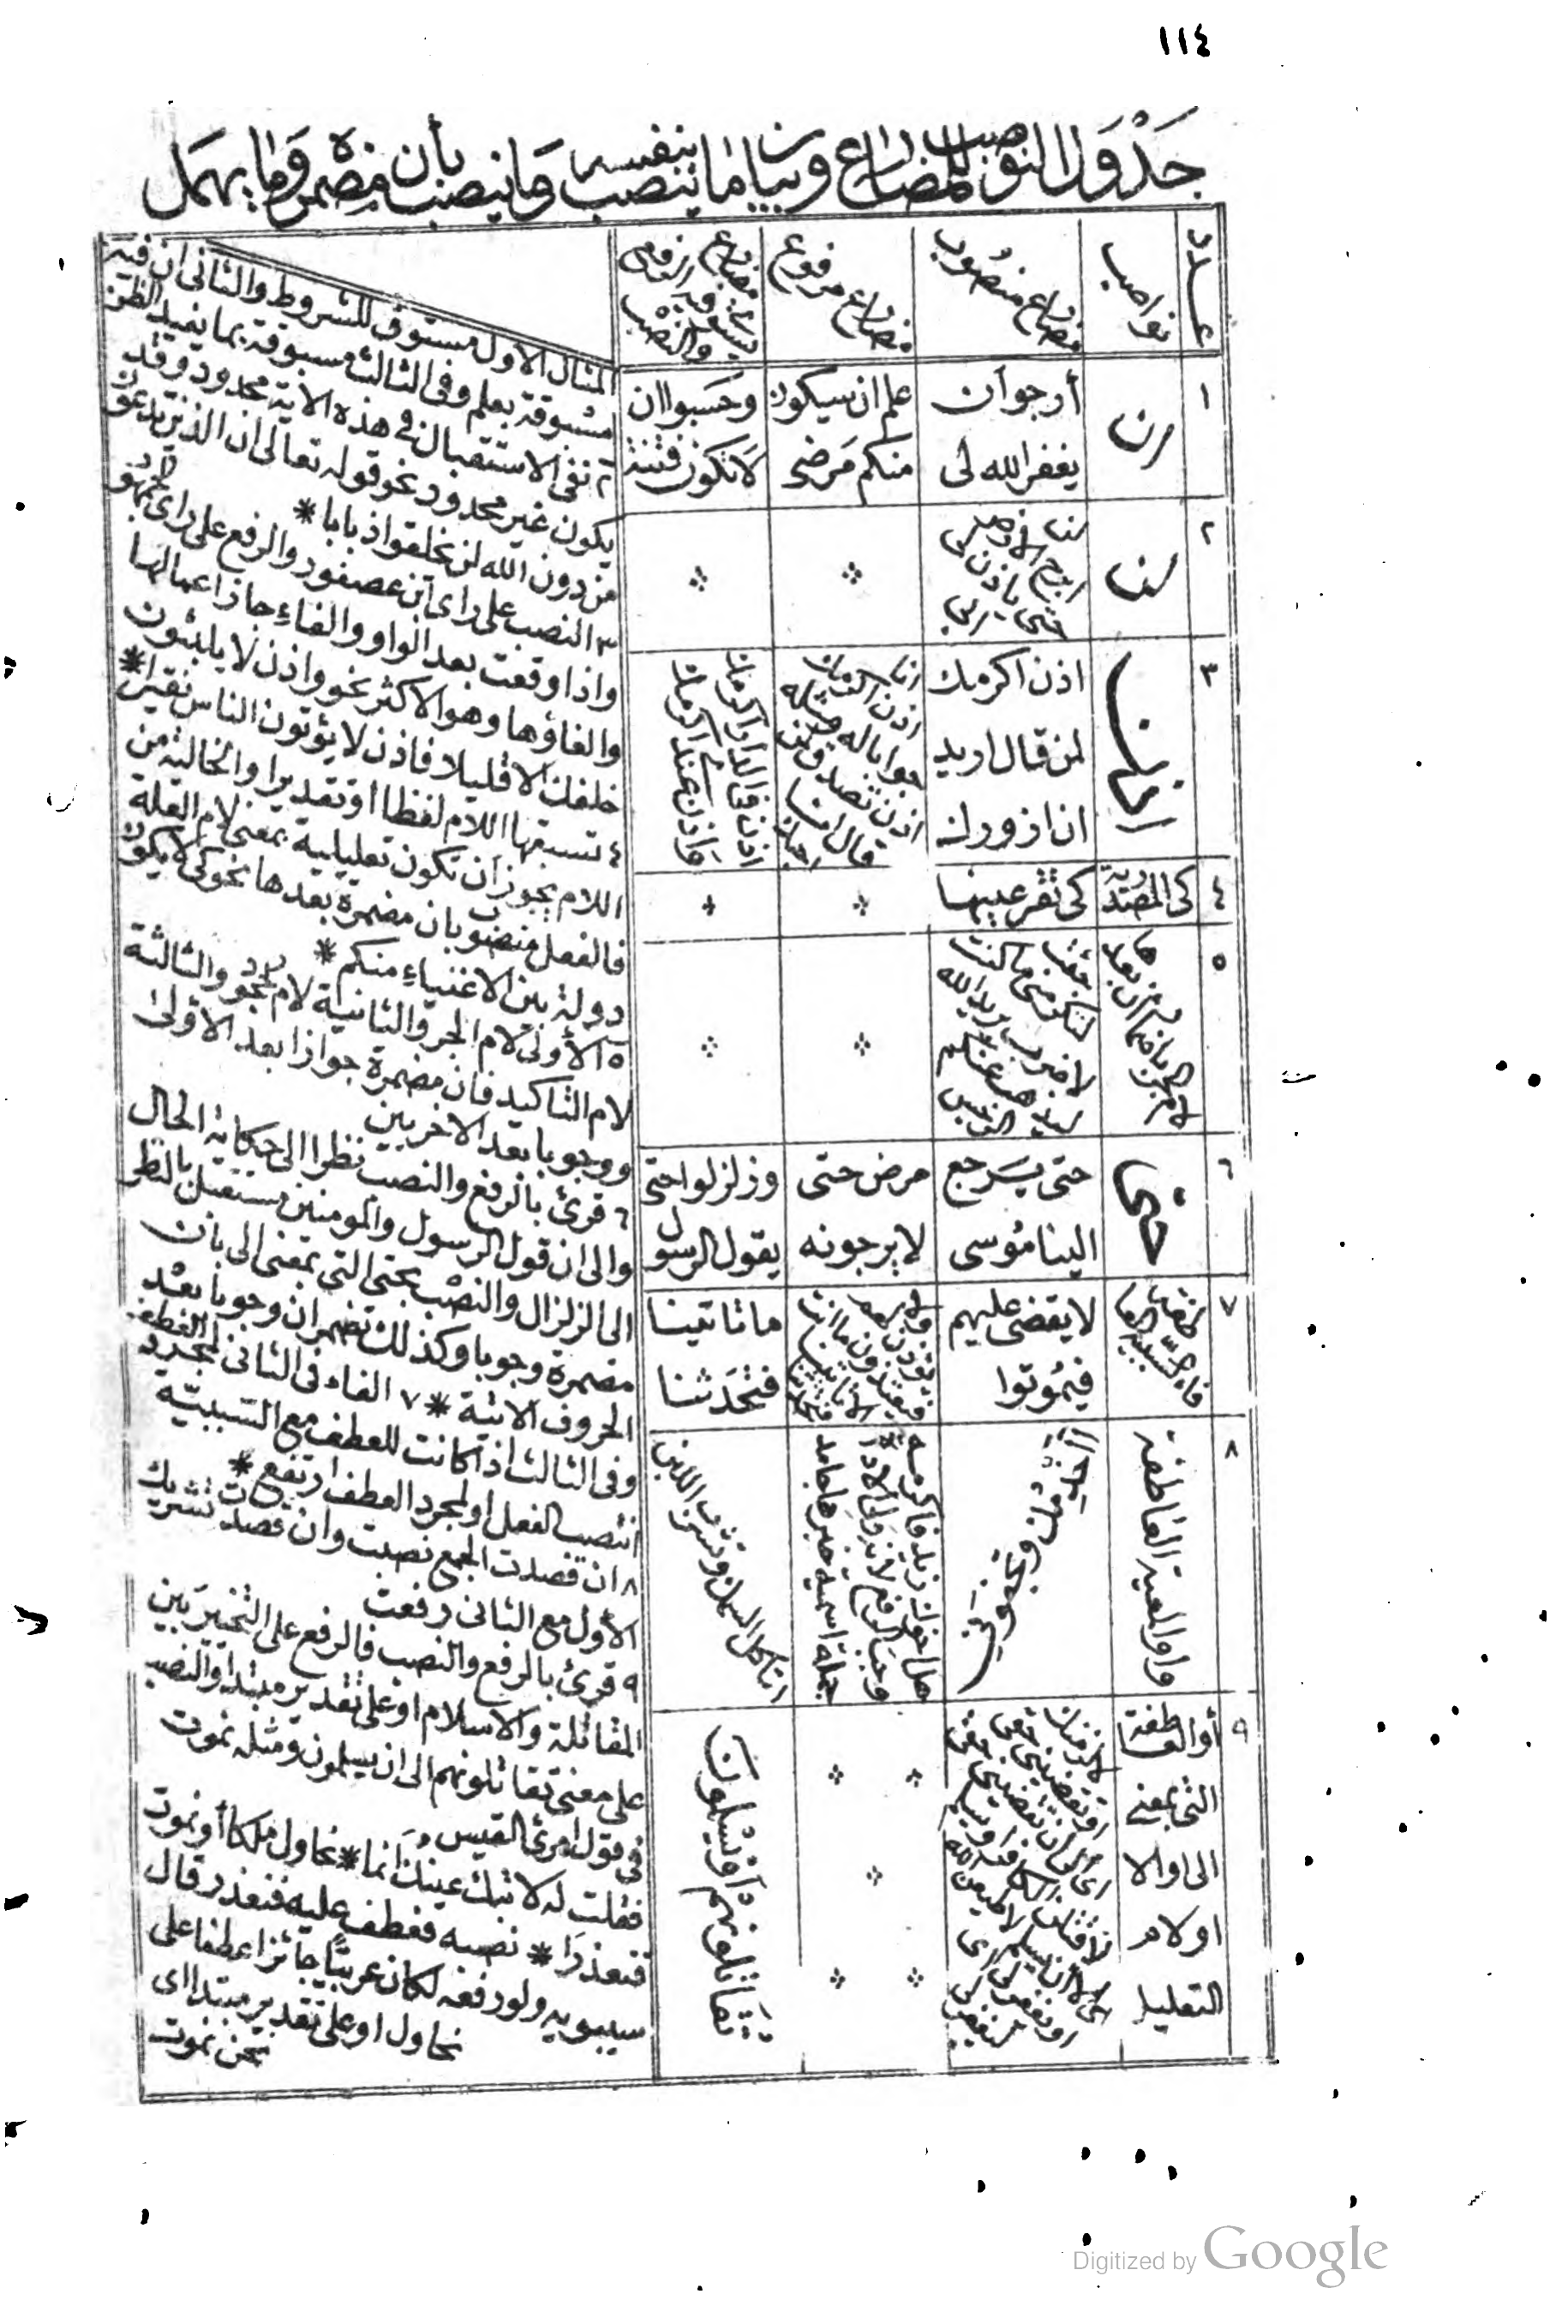 ١١٤
جَدْوَل النواصب للمضارع وبيان ما ينصب بنفسه وَمَا ينصب بأن مضمرة وَمَا يهمَل
عدد
نواصب
مضارع منصُوب
مضارع مرفوع
مضارع
يستوى فيه الرفع
والنصْب
١
ان
أرجو أن
يغفر الله لى
علم ان سيكون
منكم مَرضى
وحَسبوا ان
لا تكون فتنة
٢
لن
لن
ابرح الارض
حتى ياذن لى
ابى
٣
اذن
اذن اكرمك
لمن قال اريد
ان ازورك
انا
اذن اكرمك
جوابا له
اذن تصدق لمن
قال انا
احبك
٤
كى المصدرية
كى تقر عينها
٥
لام الجر باضمار ان بعدها
جئت
لتكرمنى ما كنت
لاضرب يريد الله
ليذهب عنكم
الرجس
٦
حتى
حتى يَرجع
الينا مُوسى
مرض حتى
لا يرجونه
وزلزلوا حتى
يقول الرسول
٧
فاء السببية العاطفة
لا يقضى عليهم
فيمُوتوا
ولا
يؤذن لهم
فيعتذرون ما انت
ما تاتينا
فتحدَثنا
٨
واو المعية العاطفة
هل اخوك زيد فاكرمه
وجب الرفع لان
جملة اسمية خبرها جامد
لا تاكل السمك وتشرب اللبن
٩
أو العاطفة
التى بمعنى
الى او الا
او لام
التعليل
لالزمنك
او تقضينى حقى
اى الى ان تقضينى حقى
لاقتلن الكافر او يسلم
اى الا ان يسلم لاطيعن الله
او يغفر لى اى
ليغفر لى
تقاتلونهم او يُسلمون
المثال الاول مستوف للشروط والثانى ان فيه
مسبوقة بعلم وفى الثالث مسبوقة بما يفيد الظن
٢ نفى الاستقبال فى هذه الاية محدود وقد
يكون غير محدود نحو قوله تعالى ان الذين تدعون
من دون الله لن يخلقوا ذبابا *
٣ النصب على راى ابن عصفور والرفع على راى الجمهور
واذا وقعت بعد الواو والفاء جاز اعمالها
والغاؤها وهو الاكثر نحو واذن لا يلبثون
خلفك الا قليلا فاذن لا يؤتون الناس نقيرا *
٤ تسبقها اللام لفظا او تقديرا والخالية من
اللام يجوز أن تكون تعليلية بمعنى لام العلة
فالفعل منصوب بان مضمرة بعدها نحو كى لا يكون
دولة بين الاغنياء منكم *
٥ الأولى لام الجر والثانية لام الجحود والثالثة
لام التاكيد فان مضمرة جوازا بعد الأولى
ووجوبا بعد الاخريين
٦ قرئ بالرفع والنصب نظرا الى حكاية الحال
والى ان قول الرسول والمومنين مستقبل بالنظر
الى الزلزال والنصْب بحتى التى بمعنى الى بان
مضمرة وجوبا وكذلك تضمر ان وجوبا بعْد
الحروف الاتية * ٧ الفاء فى الثانى لمجرد العطف
وفى الثالث اذا كانت للعطف مع السَببيّة
انتصب الفعل او لمجرد العطف ارتفع *
٨ ان قصدت الجمع نصبت وان قصدت تشريك
الأول مع الثانى رفعت
٩ قرئ بالرفع والنصب فالرفع على التخيير بين
المقاتلة والاسلام او على تقدير مبتدا والنصب
على معنى تقاتلونهم الى ان يسلمون ومثله نموت
فى قول امرئ القيس
فقلت له لا تبك عينك اِنّما * نحاول ملكا أو نموت
فنعذرَا * نصبه فعطف عليه فنعذر قال
سيبويه ولو رفعه لكان عربيًّا جائزا عطفا على
نحاول او على تقدير مبتدا اى
نحن نموت
Digitized by Google